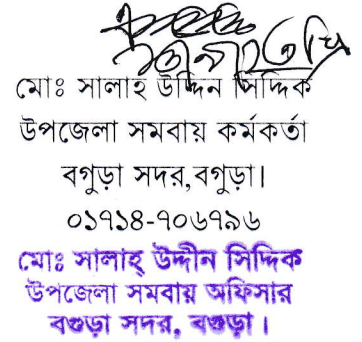 মোঃ সালাহ উদ্দিন সিদ্দিক
উপজেলা সমবায় কর্মকর্তা
বগুড়া সদর,বগুড়া।
০১৭১৪-৭০৬৭৯৬
মোঃ সালাহ্ উদ্দীন সিদ্দিক
উপজেলা সমবায় অফিসার
বগুড়া সদর, বগুড়া।